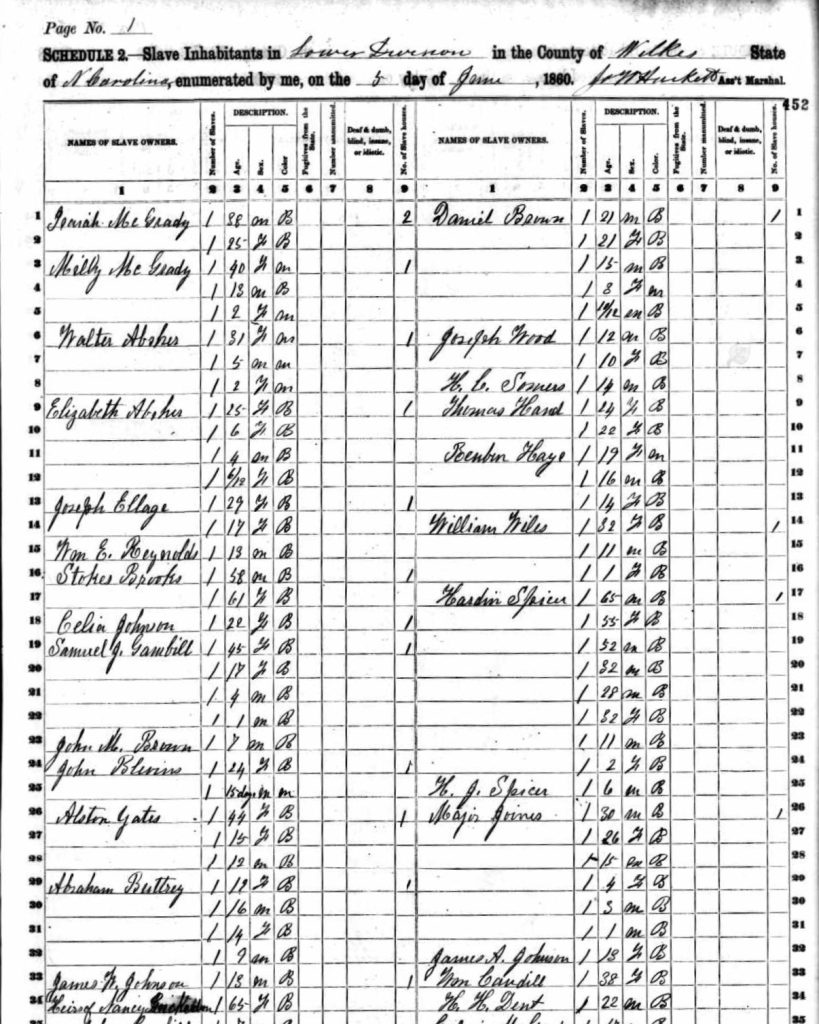 Page No. 1
SCHEDULE 2.—Slave Inhabitants in Lower Division in the County of Wilkes State
of N Carolina, enumerated by me, on the 5 day of June, 1860. Ass't Marshal.
452
NAMES OF SLAVE OWNERS. Number of Slaves. DESCRIPTION. Age. Sex. Color. Fugitives from the State. Number manumitted. Deaf & dumb, blind, insane, or idiotic. No. of Slave houses. NAMES OF SLAVE OWNERS. Number of Slaves. DESCRIPTION. Age. Sex. Color. Fugitives from the State. Number manumitted. Deaf & dumb, blind, insane, or idiotic. No. of Slave houses.
1 2 3 4 5 6 7 8 9 1 2 3 4 5 6 7 8 9
1 Isaiah McGrady 1 38 m B 2 Daniel Brown 1 21 m B 1 1
2 1 25 F B 1 21 F B 2
3 Milly McGrady 1 40 F m 1 1 15 m B 3
4 1 13 m B 1 8 F m 4
5 1 2 F m 1 m B 5
6 Walter Absher 1 31 F m 1 Joseph Wood 1 12 m B 6
7 1 5 m m 1 10 F B 7
8 1 2 F m H. C. Somers 1 14 m B 8
9 Elizabeth Absher 1 25 F B 1 Thomas Hand 1 24 F B 9
10 1 6 F B 1 22 F B 10
11 1 4 m B Reuben Haye 1 19 F m 11
12 1 6/12 F B 1 16 m B 12
13 Joseph Ellage 1 29 F B 1 1 14 F B 13
14 1 17 F B William Wiles 1 32 F B 1 14
15 Wm E. Reynolds 1 13 m B 1 11 m B 15
16 Stokes Brooks 1 58 m B 1 1 1 F B 16
17 1 61 F B Hardin Spicer 1 65 m B 1 17
18 Celia Johnson 1 22 F B 1 1 55 F B 18
19 Samuel J. Gambill 1 45 F B 1 1 52 m B 19
20 1 17 F B 1 32 m B 20
21 1 4 m B 1 28 m B 21
22 1 1 m B 1 32 F B 22
23 John M. Brown 1 7 m B 1 11 m B 23
24 John Blevins 1 24 F B 1 1 2 F B 24
25 1 15 days m m H. J. Spicer 1 6 m B 25
26 Alston Yates 1 44 F B 1 Major Joines 1 30 m B 1 26
27 1 15 F B 1 26 F B 27
28 1 12 m B 1 15 m B 28
29 Abraham 1 12 F B 1 1 4 F B 29
30 1 16 m B 1 3 m B 30
31 1 14 F B 1 1 m B 31
32 1 7 m B James A. Johnson 1 13 F B 32
33 James W. Johnson 1 13 m B 1 Wm Caudill 1 38 F B 33
34 Heirs of Nancy 1 65 F B H. H. Dent 1 22 m B 34
35